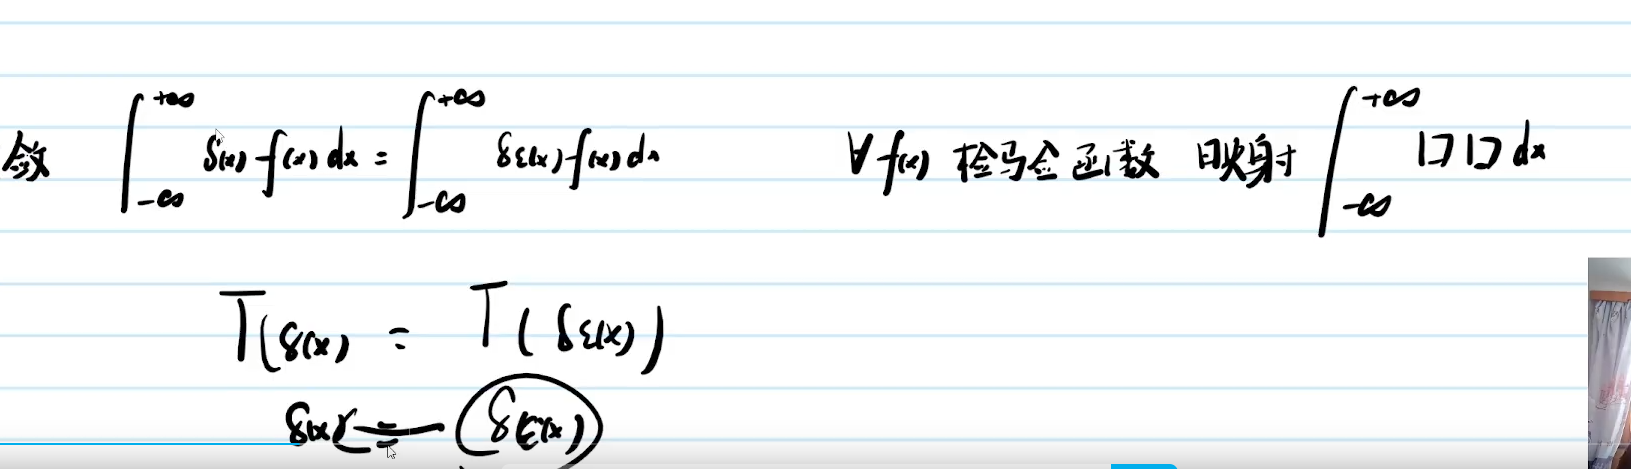 敛 ∫_{-∞}^{+∞} δ(x) f(x) dx = ∫_{-∞}^{+∞} δε(x) f(x) dx ∀ f(x) 检验函数 映射 ∫_{-∞}^{+∞} [ ] [ ] dx
T(δ(x) = T(δε(x))
δ(x) = δε(x)